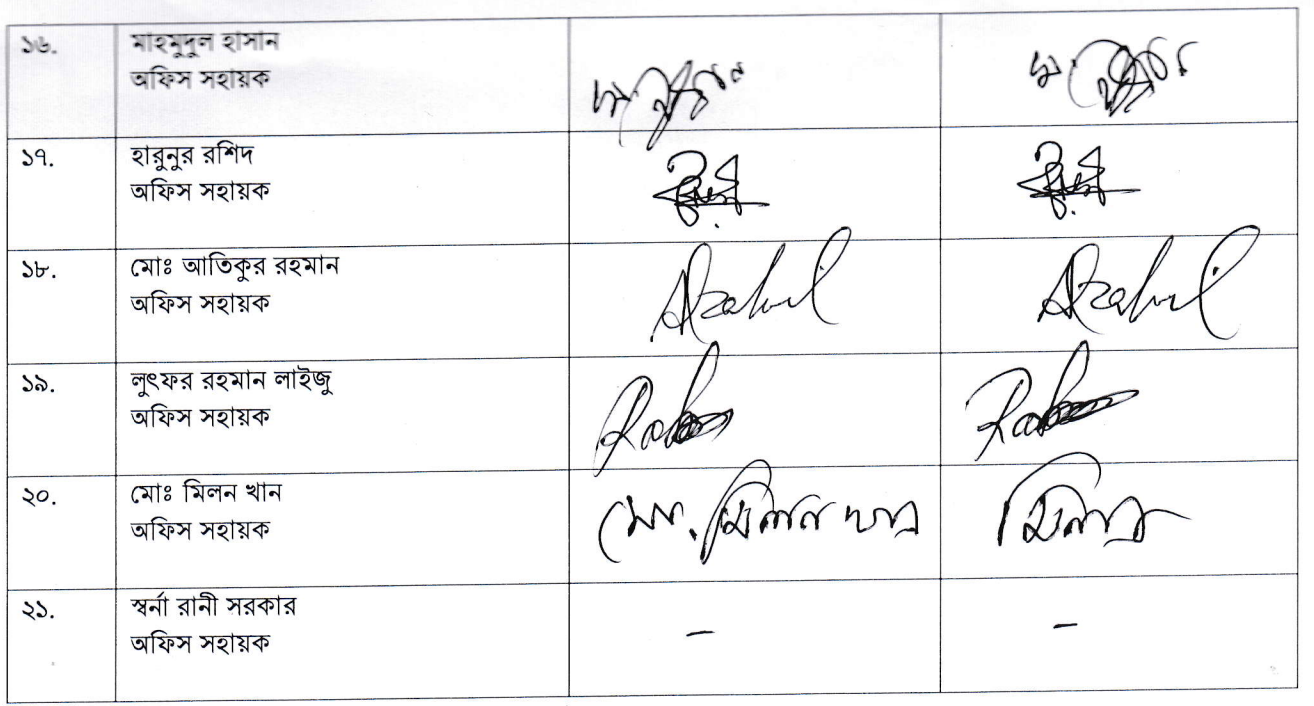 ১৬. মাহমুদুল হাসান
অফিস সহায়ক
১৭. হারুনুর রশিদ
অফিস সহায়ক
১৮. মোঃ আতিকুর রহমান
অফিস সহায়ক
১৯. লুৎফর রহমান লাইজু
অফিস সহায়ক
২০. মোঃ মিলন খান মো. মিলন খান মিলন
অফিস সহায়ক
২১. স্বর্না রানী সরকার - -
অফিস সহায়ক